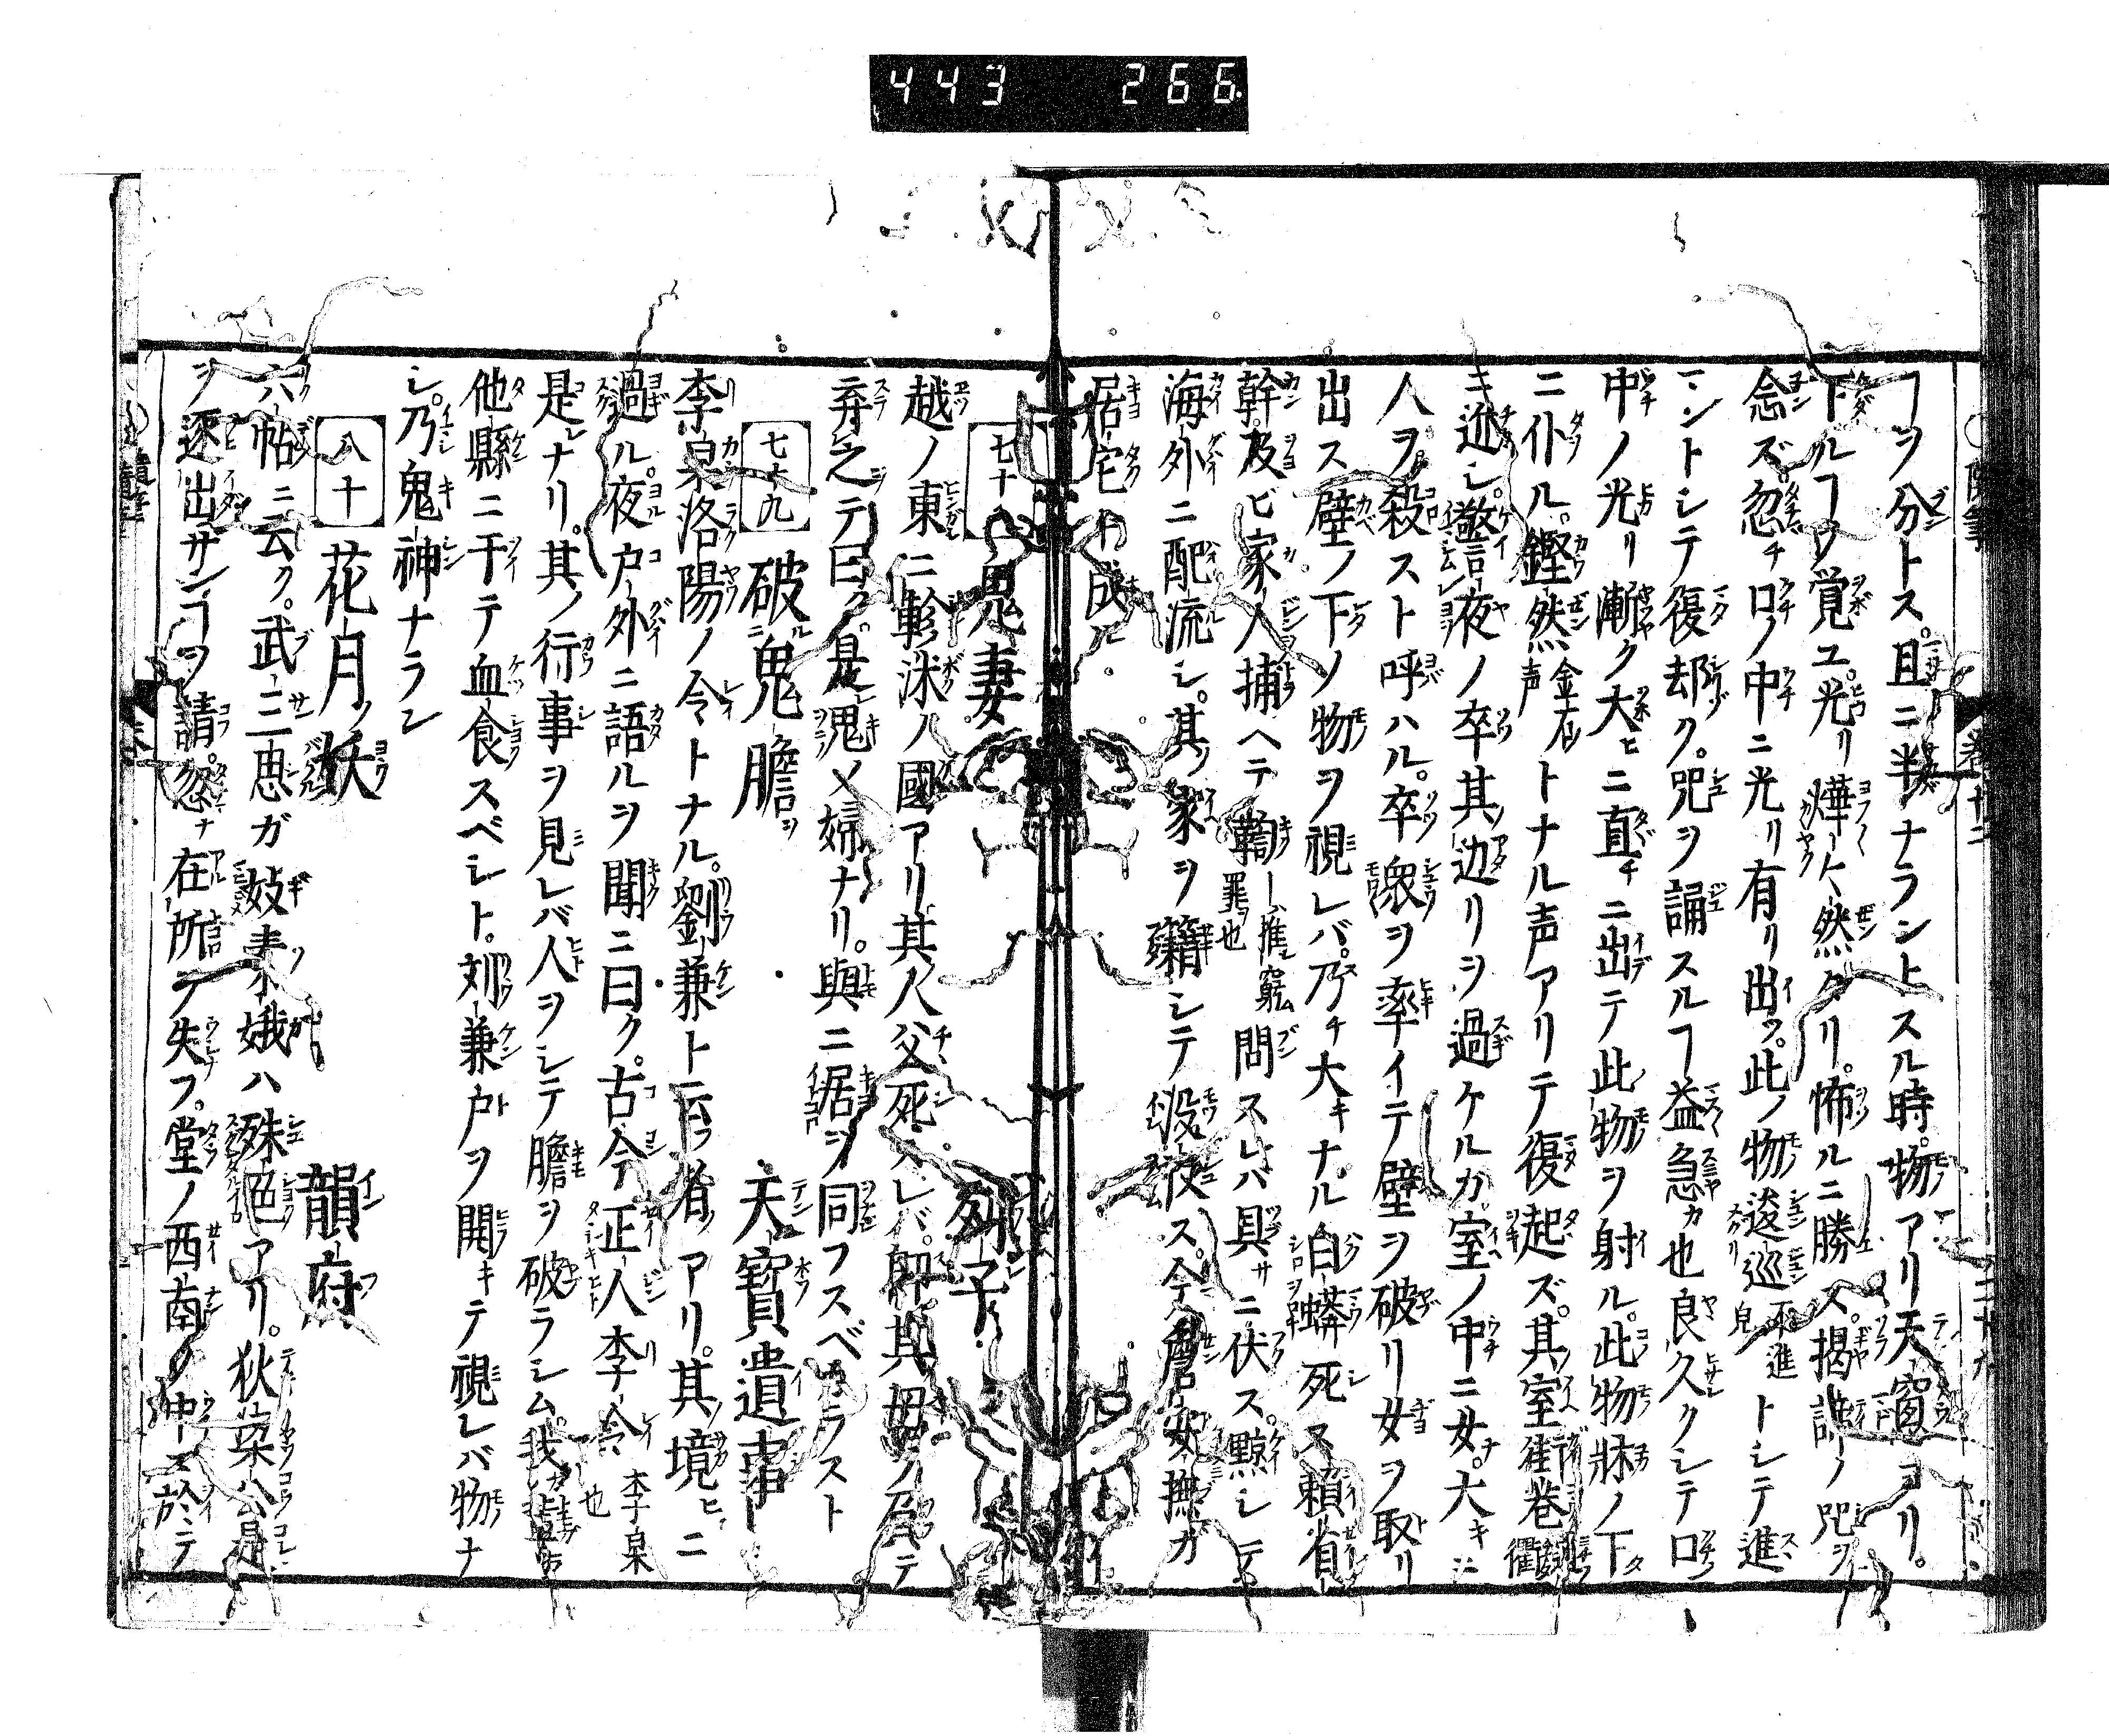 443 266
ヿヲ分トス。且ニ半ナラントスル時。物アリ天窗ヨリ。
下ルヿヲ覚ユ。光リ燁〻然タリ。怖ルニ勝ス。揭諦ノ咒ヲ
念ズ。忽チ口ノ中ニ光リ有リ出ヅ。此ノ物逡巡不進見トシテ進
ントシテ復却ク。咒ヲ誦スルヿ益急カ也良久クシテ口
中ノ光リ漸ク大ヒニ直チニ出テ此物ヲ射ル。此物牀ノ下
ニ仆ル。鏗然金石声トナル声アリテ復起ズ。其室街巷衢
ニ近シ。警夜ノ卒其辺リヲ過ケルカ。室ノ中ニ女。大キニ
人ヲ。殺スト呼ハル。卒衆ヲ率イテ壁ヲ破リ女ヲ取リ
出ス壁ノ下ノ物ヲ視レバ。乃チ大キナル白蟒死ス頼省
幹及ビ家人捕ヘテ鞫推窮罪也問スレハ具サニ伏ス。黥シテ
海外ニ配流シ。其家ヲ籍シテ没收ス。今詹安撫ガ
居宅ト成ル
鬼妻 列子
越ノ東ニ輆沐ノ國アリ其人父死スレバ。即其母ヲ負テ
弃之テ曰ク。是鬼ノ婦ナリ。與ニ居ヲ同フスベカラスト
七十九 破鬼膽 天寶遺事
李杲洛陽ノ令トナル。劉兼ト云フ者アリ。其境ヒニ
過ル夜戸外ニ語ルヲ聞ニ曰ク。古今正人李令李杲也
是ナリ。其ノ行事ヲ見レバ人ヲシテ膽ヲ破ラシム我
他縣ニ干テ血食スベシト。刘兼戸ヲ開キテ視レバ物ナ
シ。乃鬼神ナラン
八十 花月ノ妖 韻府
六帖ニ云ク。武三思ガ妓素娥ハ殊色アリ。狄梁公是
ヲ逐出サンヿヲ請。忽ナ在所テ失フ。堂ノ西南ノ中ニ於テ